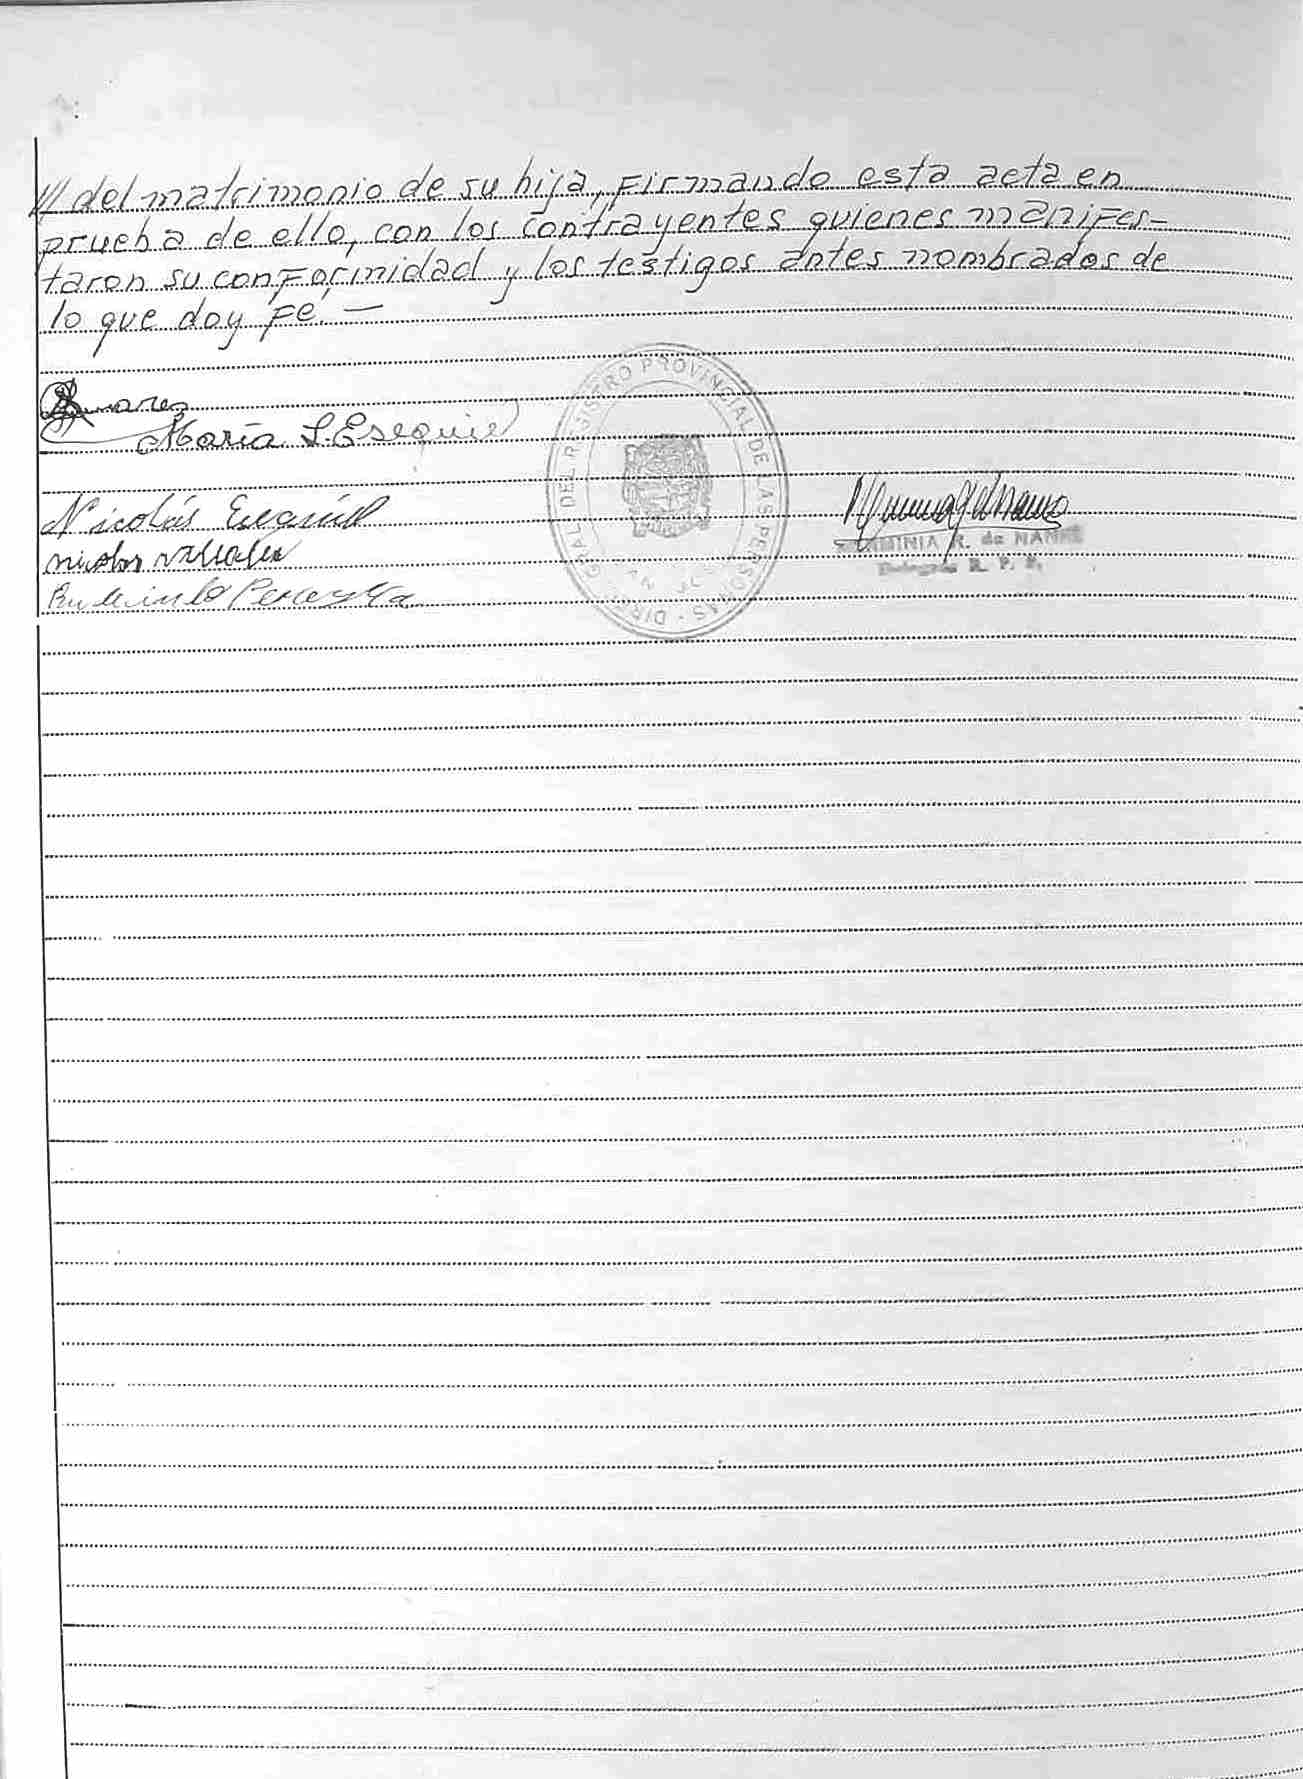 /// del matrimonio de su hija, firmando esta acta en
prueba de ello, con los contrayentes quienes manifes-
taron su conformidad y los testigos antes nombrados de
lo que doy fé. —
María S. Esequiel
Nicolás Esequiel
Pereyra
DIREC GRAL DEL REGISTRO PROVINCIAL DE LAS PERSONAS
HERMINIA R. de NANNI
Delegada R. P. P.